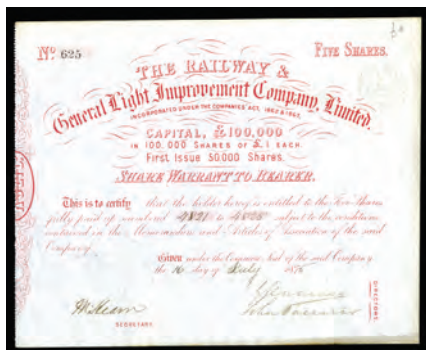 Nº 625
FIVE SHARES.
THE RAILWAY &
General Light Improvement Company, Limited.
INCORPORATED UNDER THE COMPANIES ACT, 1862 & 1867.
CAPITAL, £100,000
IN 100,000 SHARES OF £1 EACH.
First Issue 50,000 Shares.
SHARE WARRANT TO BEARER.
This is to certify that the holder hereof is entitled to the Five Shares
fully paid up numbered 4821 to 4825 subject to the conditions
contained in the Memorandum and Articles of Association of the said
Company.
Given under the Common Seal of the said Company
the 16 day of July 187
SECRETARY.
DIRECTORS.